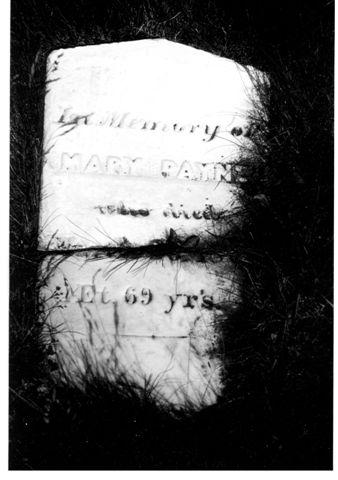 In Memory of
MARY PAYNE
who died
Æt. 69 yr's